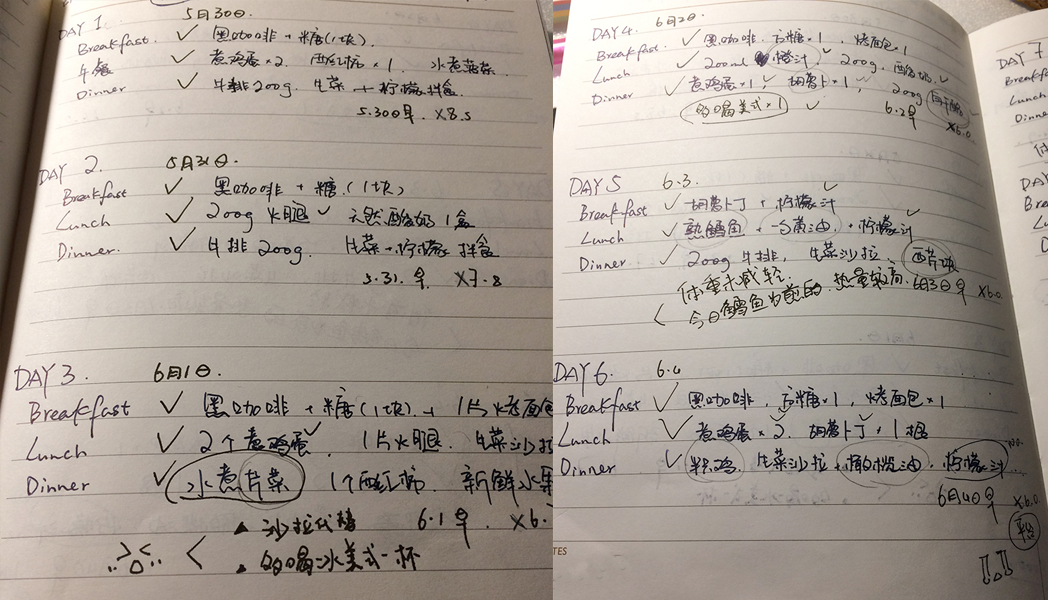 DAY 1
5月30日.
Breakfast. ✓ 黑咖啡 + 糖(1块).
午餐 ✓ 煮鸡蛋×2. 西红柿×1. 水煮菠菜.
Dinner ✓ 牛排200g. 生菜 + 柠檬拌食.
5.30日早. X8.5
DAY 2.
5月31日.
Breakfast ✓ 黑咖啡 + 糖.(1块)
Lunch ✓ 200g 火腿 ✓ 天然酸奶1盒
Dinner. ✓ 牛排200g. 生菜+柠檬拌食
5.31.早. X7.8
DAY 3.
6月1日.
Breakfast ✓ 黑咖啡 + 糖(1块) + 1片烤面包
Lunch ✓ 2个煮鸡蛋 ✓. 1片火腿. 生菜沙拉
Dinner ✓ 水煮芹菜 1个西红柿 新鲜水果
▲ 沙拉代替 6.1早. X6.
▲ 多喝冰美式一杯
DAY4.
6月2日.
Breakfast ✓ 黑咖啡. 方糖×1, 烤面包×1
Lunch ✓ 200ml 橙汁 ✓ 200g. 酸奶 ✓
Dinner ✓ 煮鸡蛋×1, 胡萝卜×1 ✓ 200g
多喝美式×1 ✓ 6.2早 X6.0.
DAY 5
6.3.
Breakfast ✓ 胡萝卜丁 + 柠檬汁
Lunch ✓ 熟鳕鱼 + 一勺黄油. + 柠檬汁
Dinner ✓ 200g牛排, 生菜沙拉、西芹
体重未减轻.
< 今日鳕鱼为煎的. 热量较高. 6月3日早 X6.0.
DAY 6
6.4
Breakfast ✓ 黑咖啡, 方糖×1, 烤面包×1
Lunch ✓ 煮鸡蛋×2. 胡萝卜丁+1根
Dinner ✓ 鸡. 生菜沙拉+橄榄油. 柠檬汁
6月4日早 X6.0.
!!
TES
DAY 7
Breakf
Lunch
Dinne
DAY
Brea
Lu
D